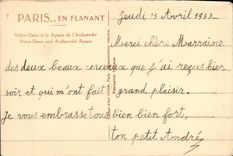 PARIS.. EN FLANANT
Notre-Dame et le Square de l'Archevêché
Notre-Dame and Archevêché Square
Jeudi 13 Avril 1933
Merci chère Marraine
des deux beaux cerceaux que j'ai reçus hier
soir et qui m'ont fait grand plaisir.
Je vous embrasse tous bien bien fort,
ton petit André